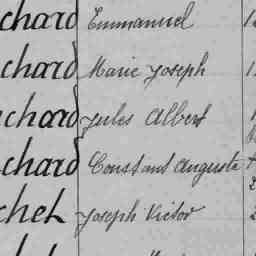 chard Emmanuel
chard Marie Joseph
chard Jules Albert
chard Constant Auguste
chet Joseph Victor